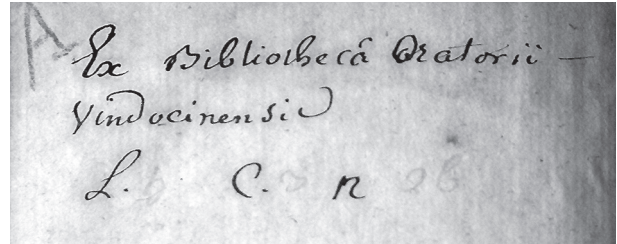 A
Ex Bibliothecâ Oratorii —
Vindocinensis
L. C. n